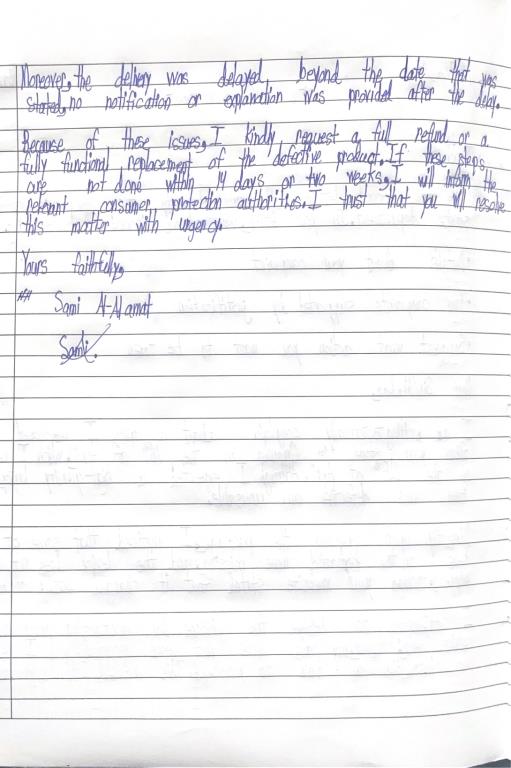 Moreover, the delivery was delayed beyond the date that was
stated, no notification or explanation was provided after the delay.
Because of these issues, I kindly request a full refund or a
fully functional replacement of the defective product. If these steps
are not done within 14 days or two weeks, I will inform the
relevant consumer protection authorities. I trust that you will resolve
this matter with urgency.
Yours faithfully,
Sami Al-Alamat
Sami.